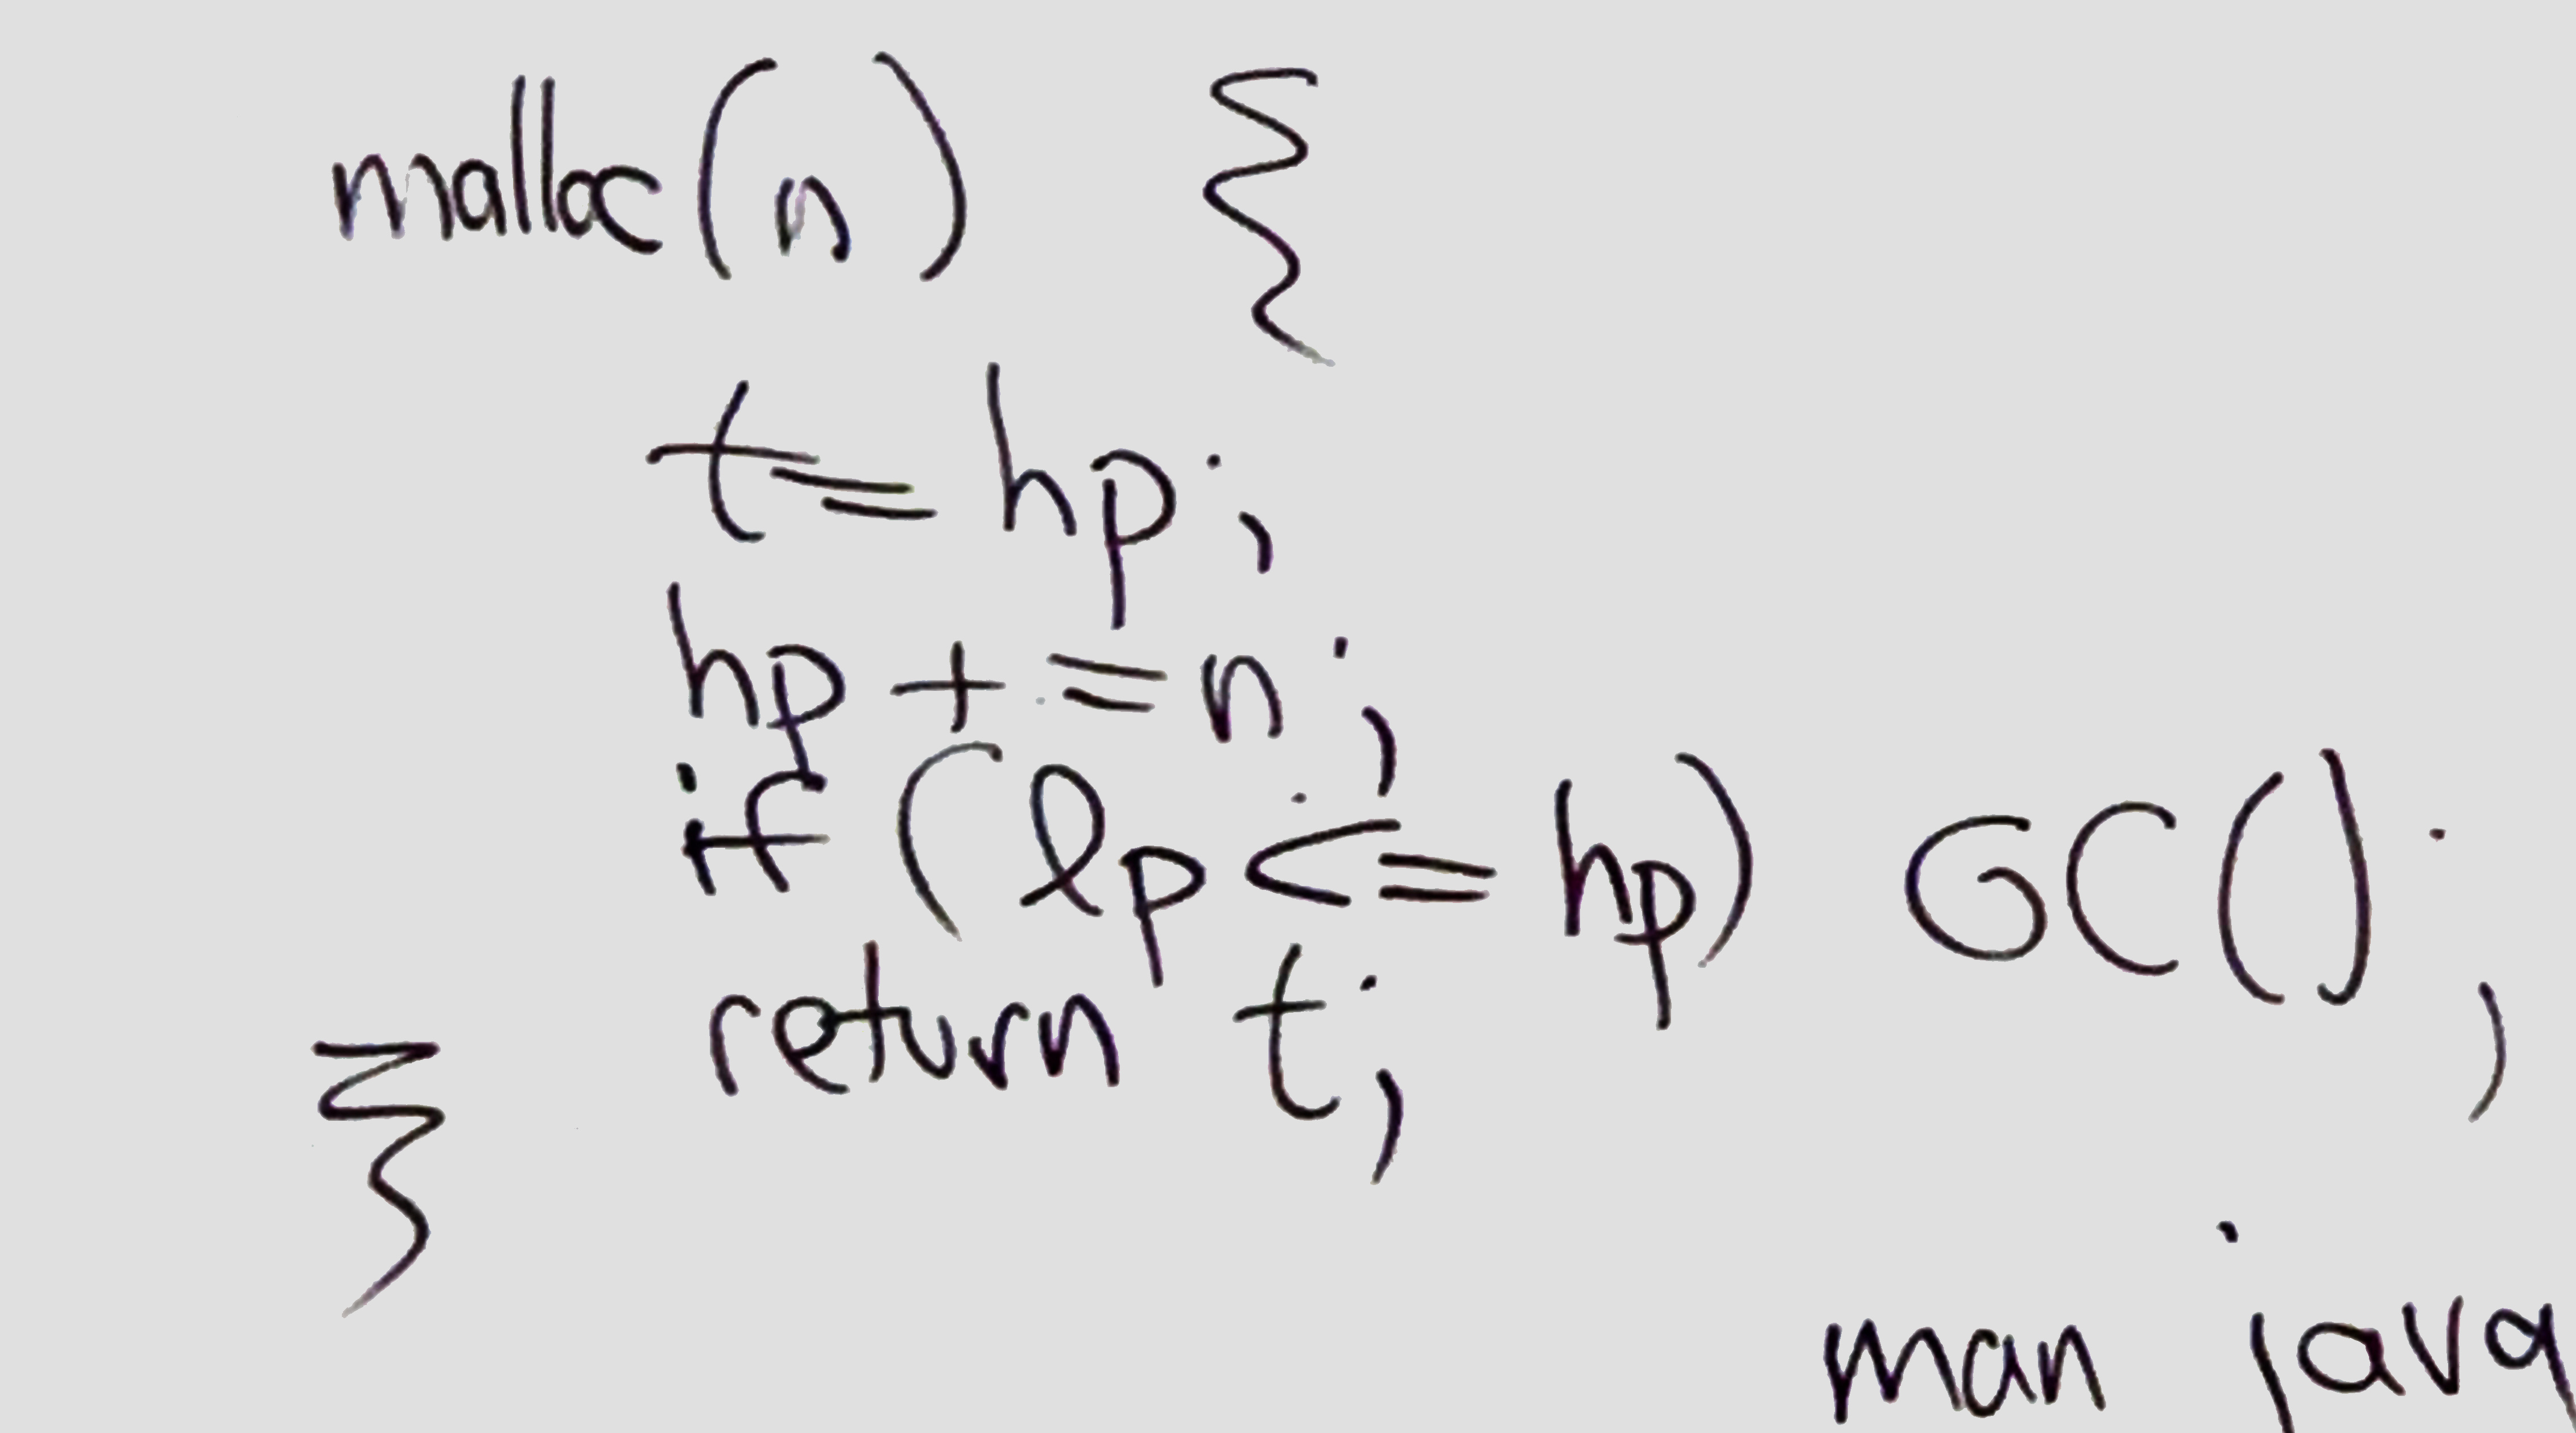 malloc(n) {
t = hp;
hp += n;
if (lp <= hp) GC();
return t;
}
man java